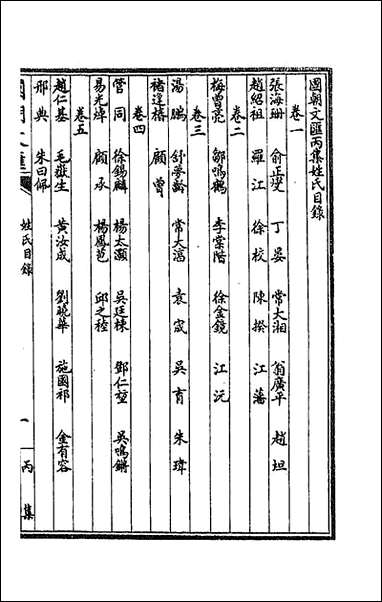 國朝文匯丙集姓氏目錄
卷一
張海珊 俞正燮 丁晏 常大湘 翁廣平 趙坦
趙紹祖 羅江 徐校 陳揆 江藩
卷二
梅曾亮 鄒鳴鶴 李棠階 徐金鏡 江沅
卷三
湯鵬 舒夢齡 常大淯 袁宬 吳育 朱瑋
褚逢椿 顧曾
卷四
管同 徐錫麟 楊太灝 吳廷棟 鄧仁堃 吳鳴鏘
易光焯 顧承 楊鳳苞 邱之稑
卷五
趙仁基 毛嶽生 黃汝成 劉曉華 施國祁 金有容
邢典 朱曰佩
姓氏目錄 一 丙集